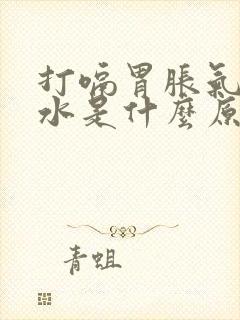 打嗝胃脹氣
水是什麼原
青蛆